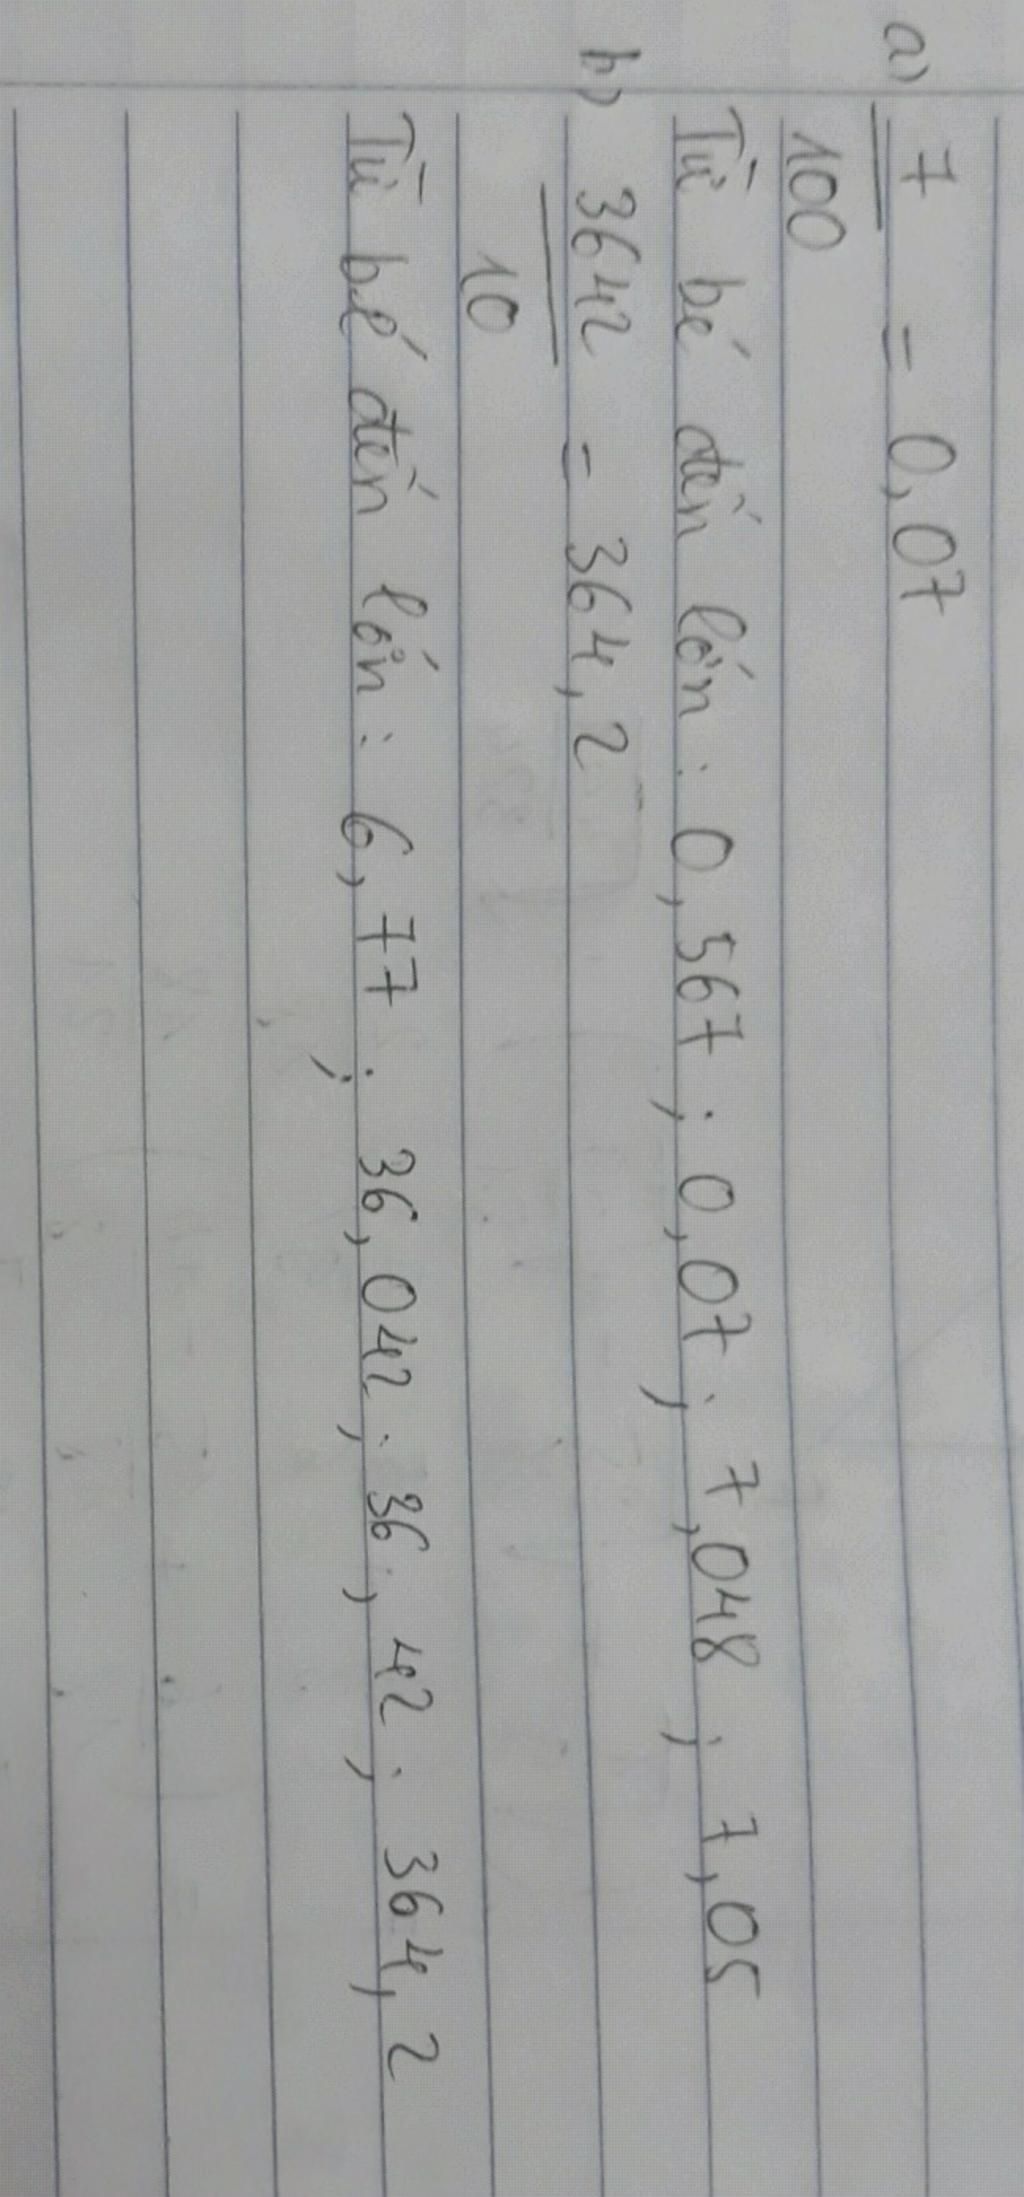 a) 7 = 0,07
100
Từ bé đến lớn : 0,567 ; 0,07 ; 7,048 ; 7,05
b) 3642 = 364,2
10
Từ bé đến lớn : 6,77 ; 36,042 ; 36,42 ; 364,2